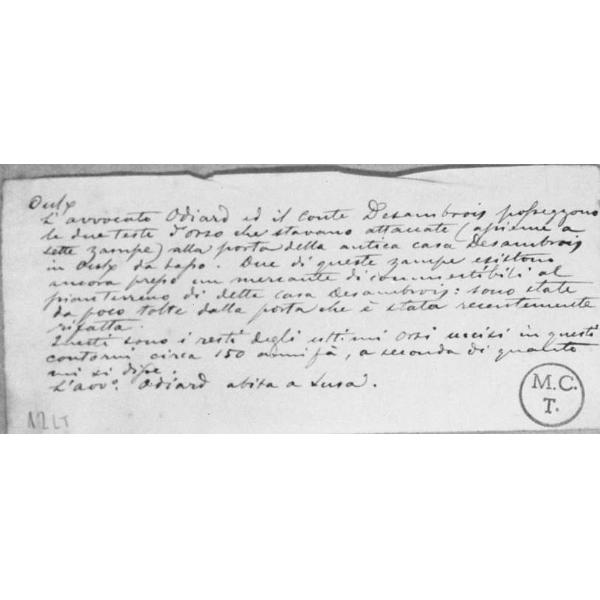 Oulx
L'avvocato Odiard ed il conte Desambrois posseggono
le due teste d'orso che stavano attaccate (assieme a
sette zampe) alla porta della antica casa Desambrois
in Oulx da basso. Due di queste zampe esistono
ancora presso un mercante di commestibili al
pianterreno di detta casa Desambrois: sono state
da poco tolte dalla porta che è stata recentemente
rifatta.
Questi sono i resti degli ultimi orsi uccisi in questi
contorni circa 150 anni fà, a seconda di quanto
mi si disse.
L'avv°. Odiard abita a Susa.
12 LT
M.C.
T.